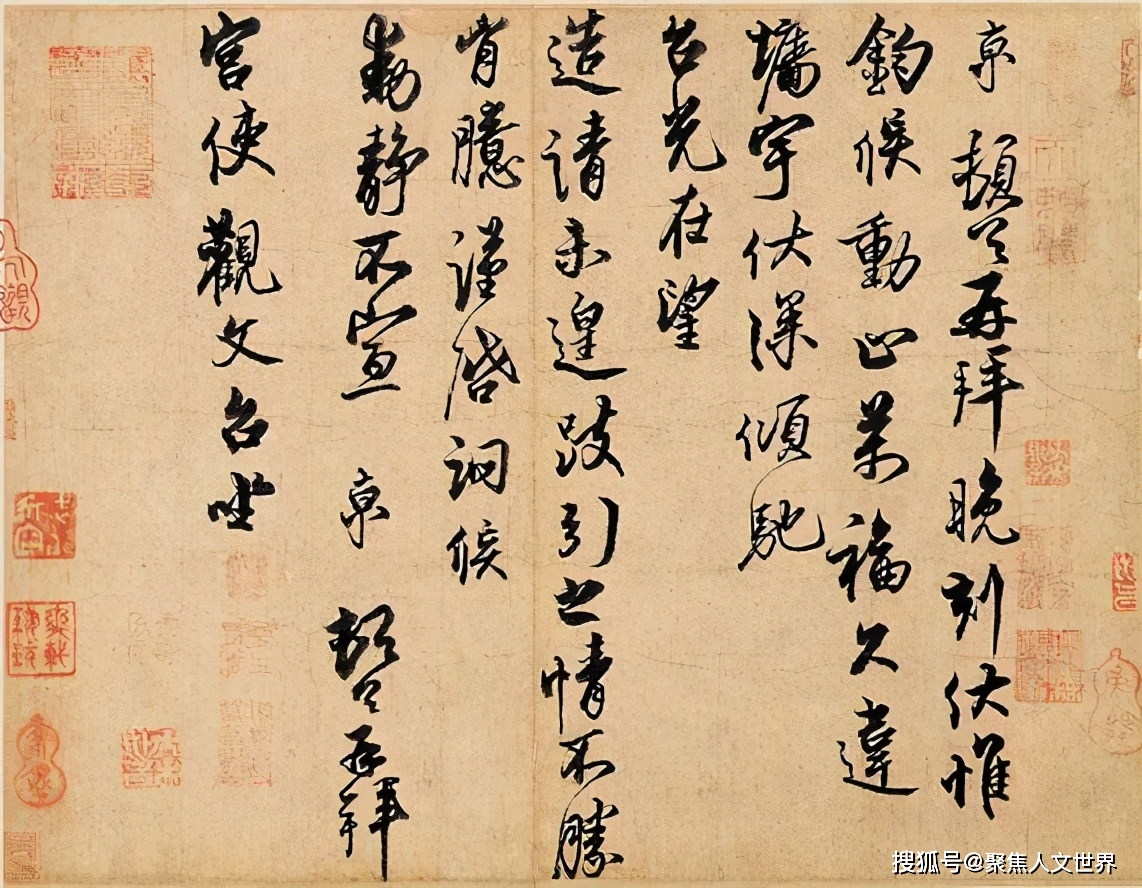 京頓首再拜晚刻伏惟
鈞候動止萬福久違
墻宇伏深傾馳
台光在望
造請未遑跂引之情不勝
胷臆謹啓詗候
動靜不宣 京頓首再拜
宮使觀文台坐
搜狐号@聚焦人文世界